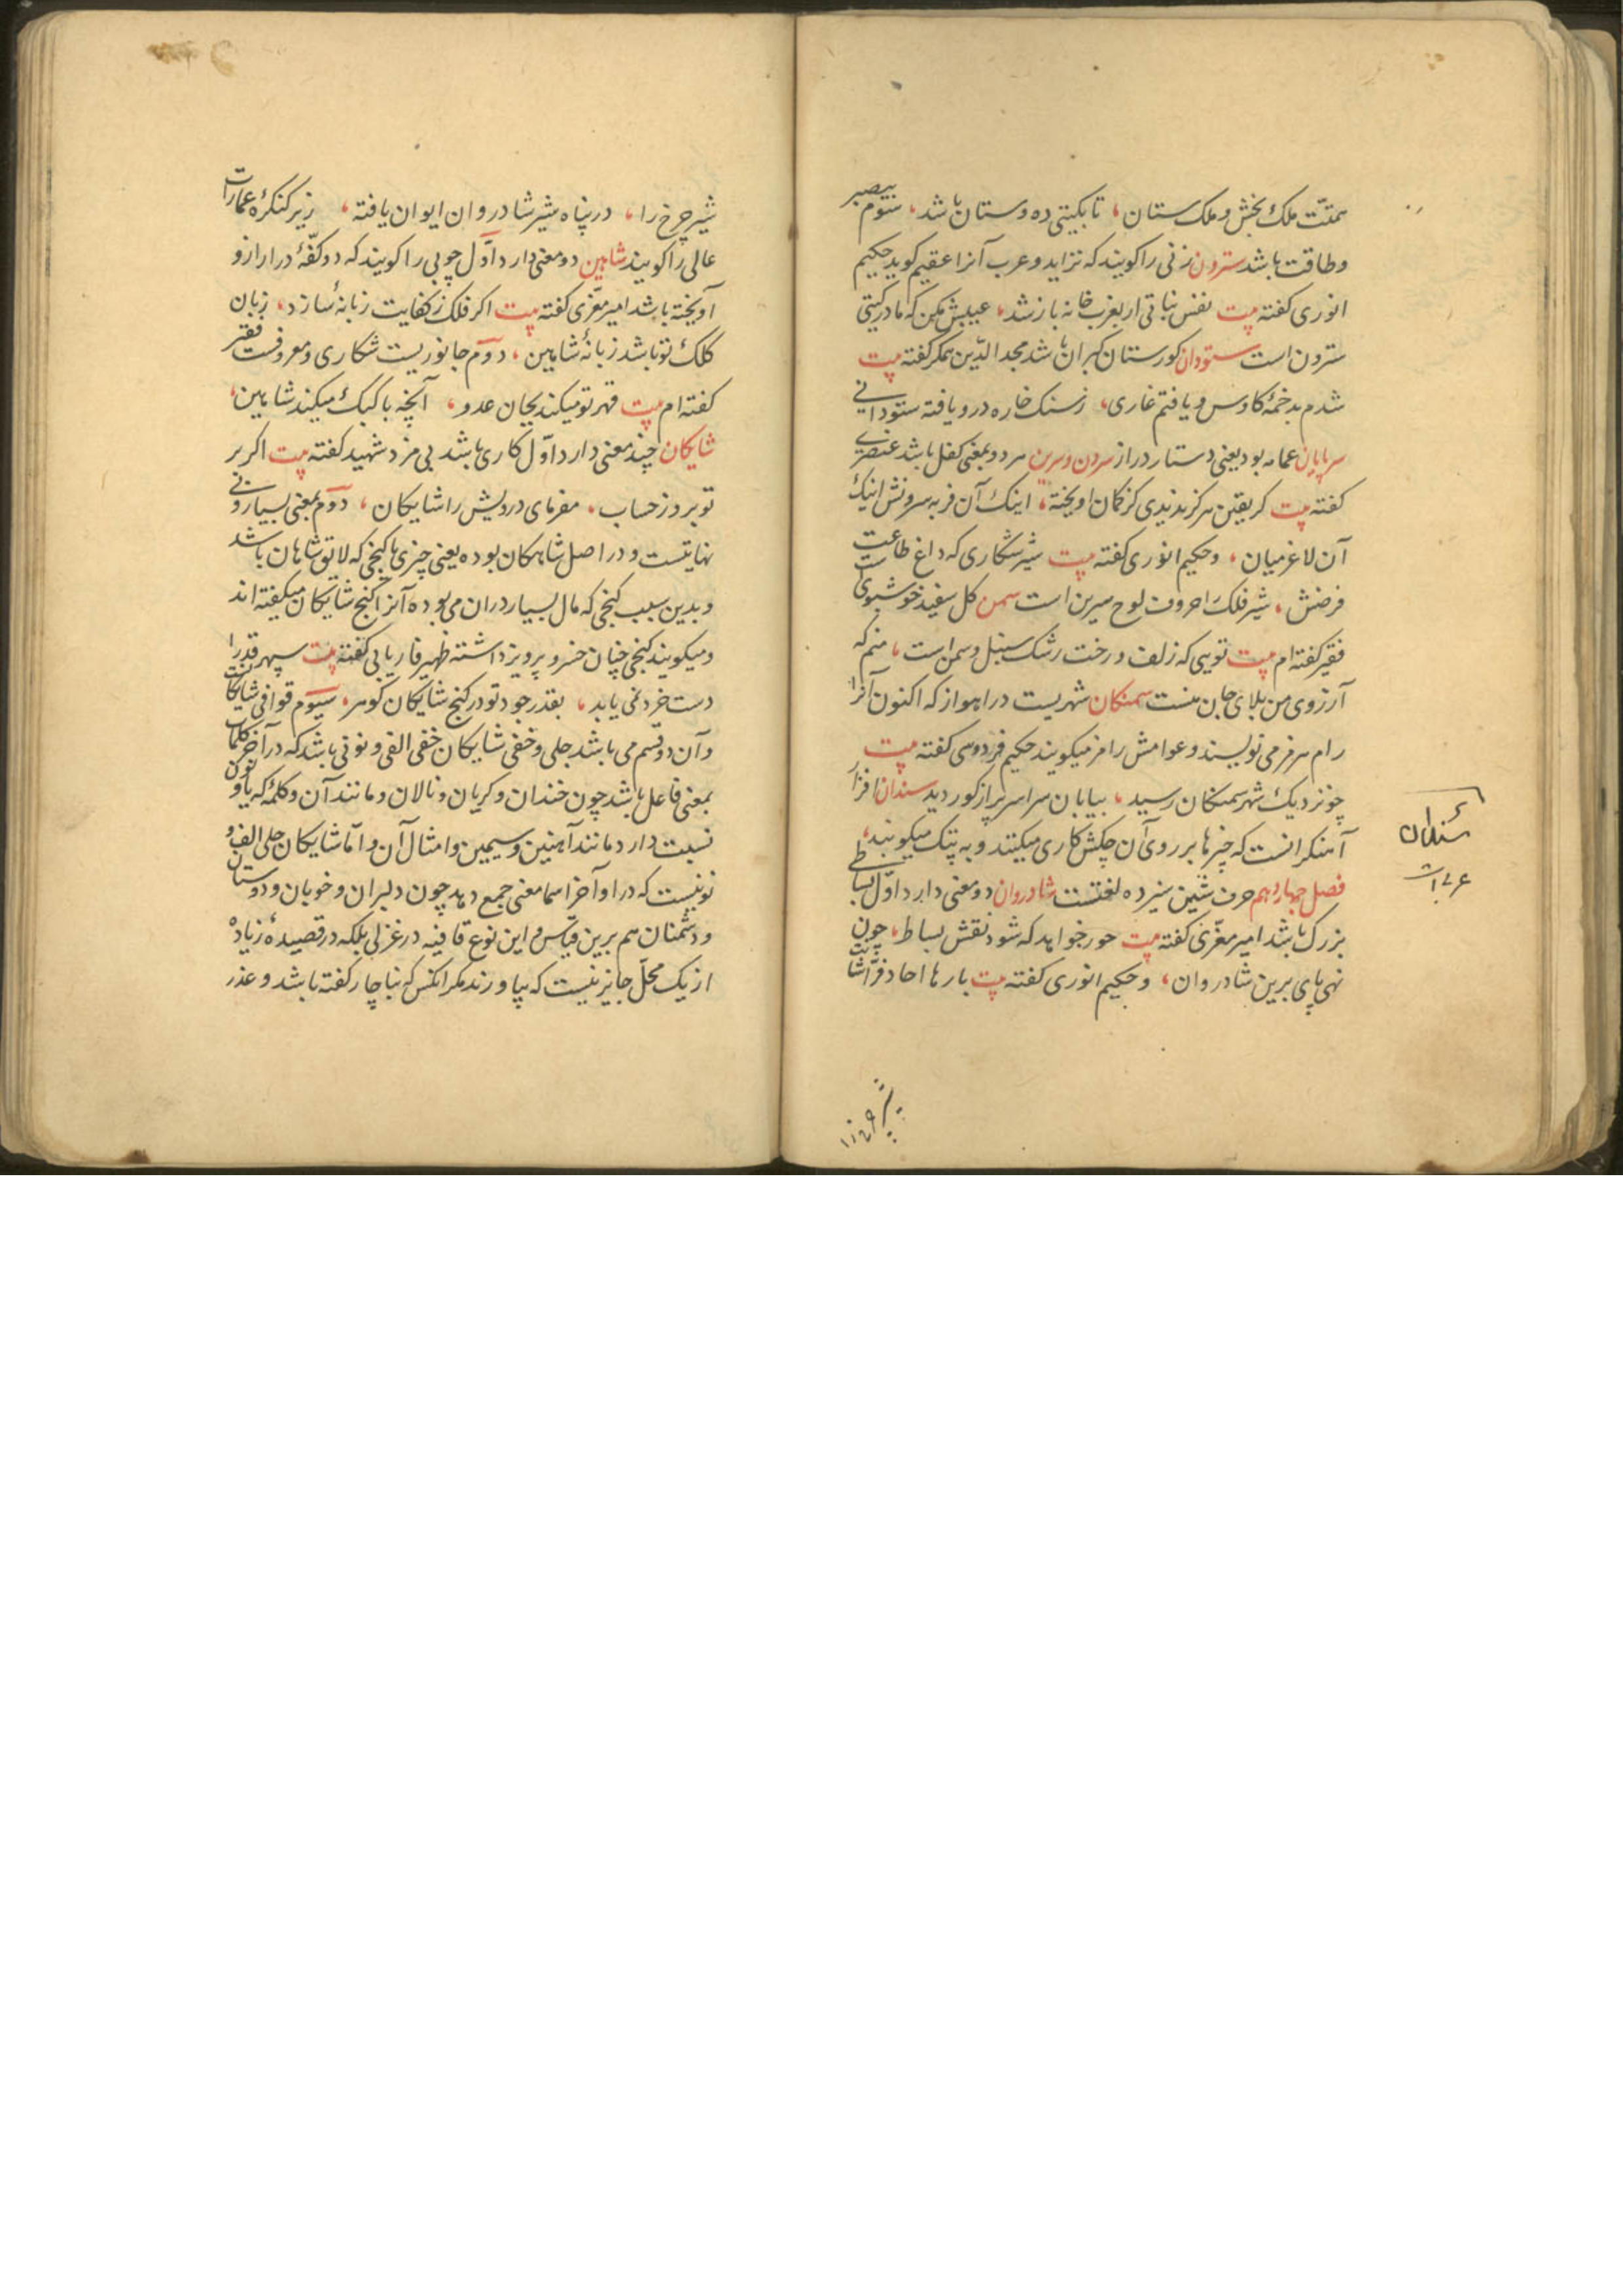 همتت ملک بخش و ملک ستان، تا بکیتی ده و ستان باشد، سوّم بمعنی صبر
و طاقت باشد سترون زنی را کویند که نزاید و عرب آنرا عقیم کوید حکیم
انوری کفته بیت نفس نباتی ار بعزب خانه باز شد، عیبش مکن که مادر کیتی
سترون است ستودان کورستان کبران باشد مجد الدّین همکر کفته بیت
شدم بدخمهٔ کاوس و یافتم غاری، ز سنک خاره درو یافته ستودانی
سرپایان عمامه بود یعنی دستار دراز سرون و سرین هر دو بمعنی کفل باشد عنصری
کفته بیت کر یقین هرکز ندیدی کز کمان اویخته، اینک آن فربه سرونش اینک
آن لاغر میان، و حکیم انوری کفته بیت شیر شکاری که داغ طاعت
فرضنش، شیر فلک را حروف لوح سرین است سمن کل سفید خوشبوی است
فقیر کفته ام بیت تویی که زلف و رخت رشک سنبل و سمن است، منم که
آرزوی من بلای جان منست سمنکان شهریست در اهواز که اکنون آنرا
رام هرمز می نویسند و عوامش رامز میکویند حکیم فردوسی کفته بیت
چو نزدیک شهر سمنکان رسید، بیابان سراسر پر از کور دید سندان افزار
آهنکرانست که چیزها بر روی آن چکش کاری میکنند و به پتک میکوبند،
سندان
فصل چهاردهم حرف شین سیزده لغتست شادروان دو معنی دارد اوّل بساطی
بزرک باشد امیر معزّی کفته بیت حور خواهد که شود نقش بساط، چون
نهی پای برین شادروان، و حکیم انوری کفته بیت بارها احاد فرّاشانت
شیر چرخ را
شیر چرخ را، در پناه شیر شادروان ایوان یافته، زیر کنکرهٔ عمارات
عالی را کویند شاهین دو معنی دارد اوّل چوبی را کویند که دو کفّهٔ ترازو
آویخته باشد امیر معزّی کفته بیت اکر فلک ز کفایت زبانهٔ سازد، زبان
کلک تو باشد زبانهٔ شاهین، دوّم جانوریست شکاری و معروفست فقیر
کفته ام بیت قهر تو میکند بجان عدو، آنچه با کبک میکند شاهین،
شایکان چند معنی دارد اوّل کاری باشد بی مزد شهید کفته بیت اکر بر
تو بر روز حساب، مفرمای درویش را شایکان، دوّم بمعنی بسیار و بی
نهایتست و در اصل شاهکان بوده یعنی چیزی یا کنجی که لایق شاهان باشد
و بدین سبب کنجی که مال بسیار دران می بوده آنرا کنج شایکان میکفته اند
و میکویند کنجی چنان خسرو پرویز داشته ظهیر فاریابی کفته بیت سپهر قدرا
دست خرد نمی یابد، بقدر جود تو در کنج شایکان کوهر، سیّوم قوافی شایکان
و آن دو قسم می باشد جلی و خفی شایکان خفی الفی و نونی باشد که در آخر کلمات
بمعنی فاعل باشد چون خندان و کریان و نالان و مانند آن و کلمهٔ که یا و نون
نسبت دارد مانند آهنین و سیمین و امثال آن و امّا شایکان جلی الف و
نونیست که در اواخر اسما معنی جمع دهد چون دلبران و خوبان و دوستان
و دشمنان هم برین قیاس و این نوع قافیه در غزلی بلکه در قصیدهٔ زیاده
از یک محلّ جایز نیست که بیاورند مکر انکس که بناچار کفته باشد و عذر